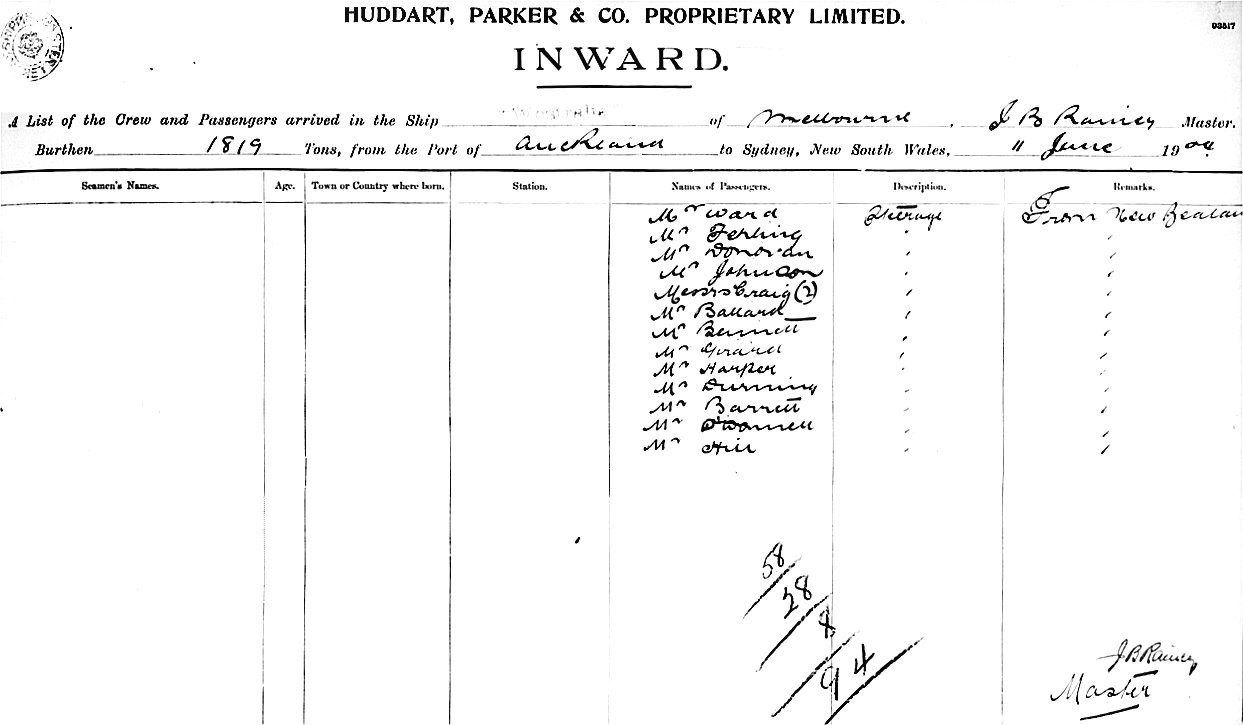 HUDDART, PARKER & CO. PROPRIETARY LIMITED.
03517
INWARD.
A List of the Crew and Passengers arrived in the Ship of Melbourne, J B Rainey Master.
Burthen 1819 Tons, from the Port of Auckland to Sydney, New South Wales, " June 1904
Seamen's Names. Age. Town or Country where born. Station. Names of Passengers. Description. Remarks.
Mr Ward Steerage From New Zealan
Mr Ferling " "
Mr Donovan " "
Mr Johnson " "
Messrs Craig (2) " "
Mr Ballard " "
Mr Bennett " "
Mr Girard " "
Mr Harper " "
Mr Durning " "
Mr Barrett " "
Mr O'Donnell " "
Mr Hill " "
58
28
8
94
J B Rainey
Master